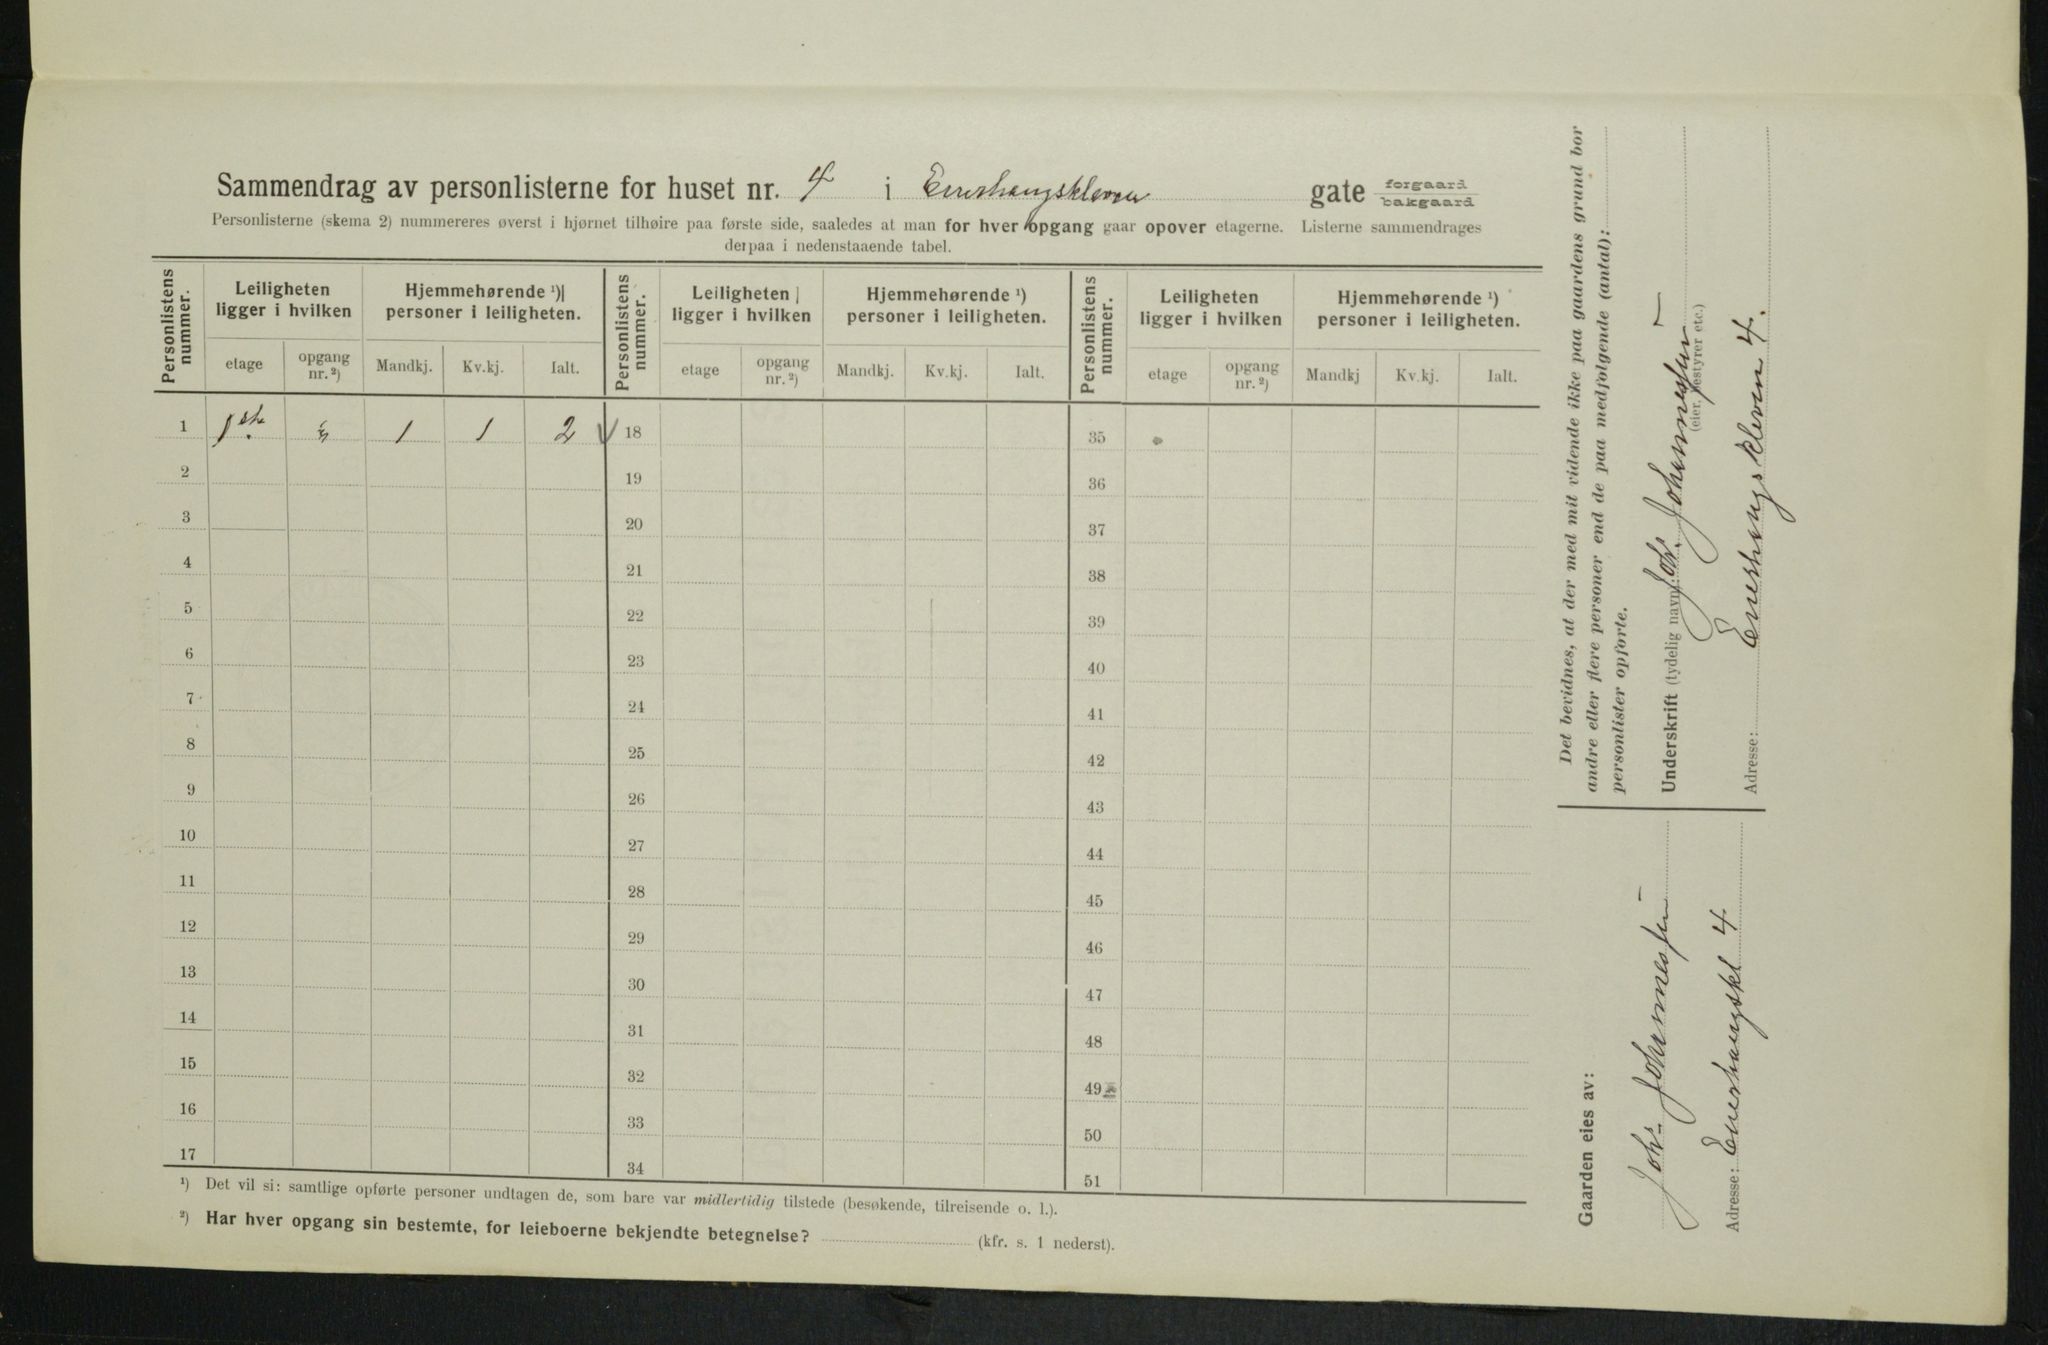 Sammendrag av personlisterne for huset nr. 4 i Enerhaugskleven gate forgaard bakgaard
Personlisterne (skema 2) nummereres øverst i hjørnet tilhøire paa første side, saaledes at man for hver opgang gaar opover etagerne. Listerne sammendrages
derpaa i nedenstaaende tabel.
Personlistens nummer.
Leiligheten ligger i hvilken
Hjemmehørende ¹) personer i leiligheten.
Personlistens nummer.
Leiligheten ligger i hvilken
Hjemmehørende ¹) personer i leiligheten.
Personlistens nummer.
Leiligheten ligger i hvilken
Hjemmehørende ¹) personer i leiligheten.
etage opgang nr. ²) Mandkj. Kv.kj. Ialt. etage opgang nr. ²) Mandkj. Kv.kj. Ialt. etage opgang nr. ²) Mandkj Kv.kj. Ialt.
1 1ste 1 1 2 18 35
2 19 36
3 20 37
4 21 38
5 22 39
6 23 40
7 24 41
8 25 42
9 26 43
10 27 44
11 28 45
12 29 46
13 30 47
14 31 48
15 32 49
16 33 50
17 34 51
¹) Det vil si: samtlige opførte personer undtagen de, som bare var midlertidig tilstede (besøkende, tilreisende o. l.).
²) Har hver opgang sin bestemte, for leieboerne bekjendte betegnelse? (kfr. s. 1 nederst).
Det bevidnes, at der med mit vidende ikke paa gaardens grund bor
andre eller flere personer end de paa medfølgende (antal):
personlister opførte.
Underskrift (tydelig navn): Johs. Johannessen
(eier, bestyrer etc.)
Adresse: Enerhaugskleven 4.
Gaarden eies av:
Johs. Johannessen
Adresse: Enerhaugskl 4